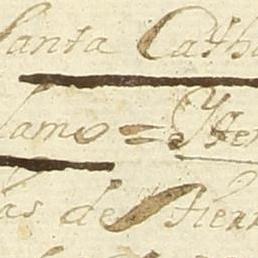 Santa Cath
lamo = Yten
as de Herr